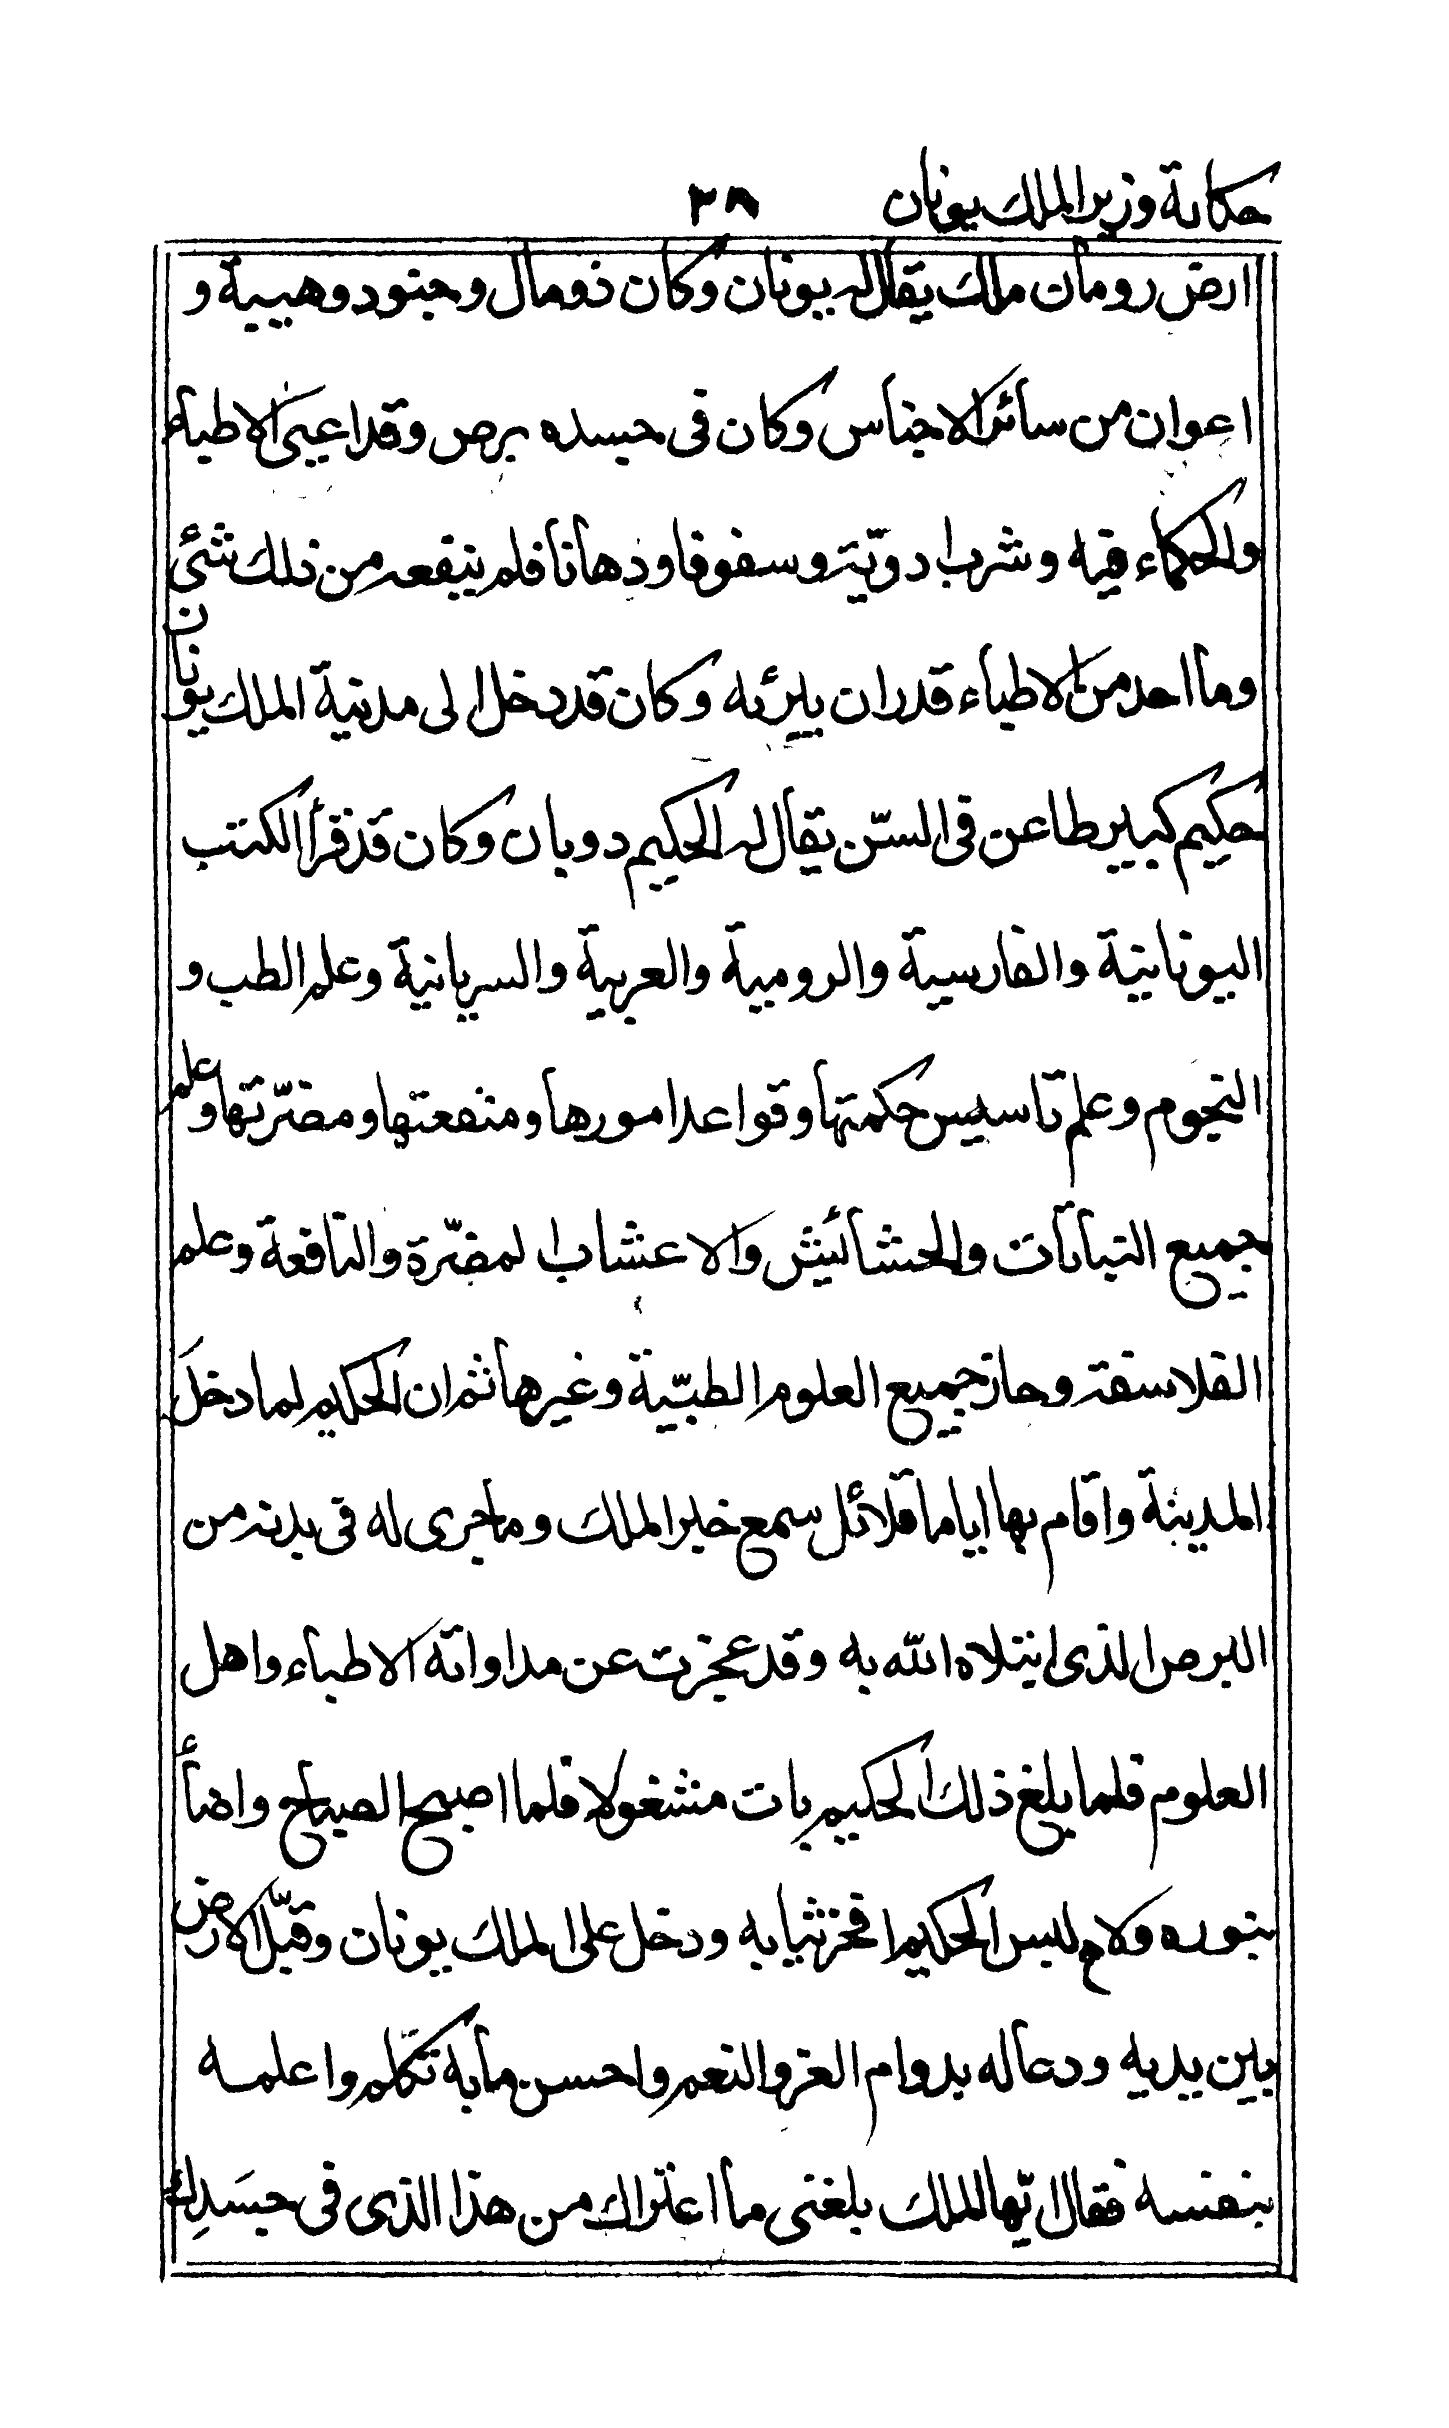 حكاية وزير الملك يونان ٣٨
ارض رومان ملك يقال له يونان وكان ذو مال وجنود وهيبة و
اعوان من سائر الاجناس وكان فى جسده برص وقد اعيى الاطباء
والحكماء فيه وشرب ادوّية وسفوفا ودهانا فلم ينفعه من ذلك شئ
وما احد من الاطباء قدر ان يبرئه وكان قد دخل الى مدينة الملك يونان
حكيم كبير طاعن فى السّن يقال له الحكيم دوبان وكان قد قرأ الكتب
اليونانية والفارسية والرومية والعربية والسريانية وعلم الطب و
النجوم وعلم تاسيس حكمتها وقواعد امورها ومنفعتها ومضرّتها وعلم
جميع النباتات والحشائيش والاعشاب المضّرة والنافعة وعلم
الفلاسفة وحاز جميع العلوم الطبّية وغيرها ثم ان الحكيم لما دخلَ
المدينة واقام بها اياما قلائل سمع خبر الملك وما جرى له فى بدنه من
البرص الذى ابتلاه الله به وقد عجزت عن مداواته الاطباء واهل
العلوم فلما بلغ ذلك الحكيم بات مشغولا فلما اصبح الصباح واضأ
بنوره ولاح لبس الحكيم افخر ثيابه ودخل على الملك يونان وقبّل الارض
بين يديه ودعا له بدوام العز والنعم واحسن ما به تكّلم واعلمه
بنفسه فقال ايّها الملك بلغنى ما اعتراك من هذا الذى فى جسَدِك